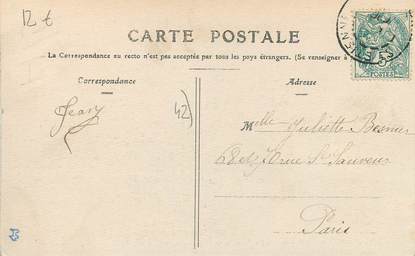 12 €
CARTE POSTALE
La Correspondance au recto n'est pas acceptée par tous les pays étrangers. (Se renseigner à
Correspondance
Adresse
Jeary
42)
Melle Juliette Besnier
rue St Sauveur
Paris
POSTES